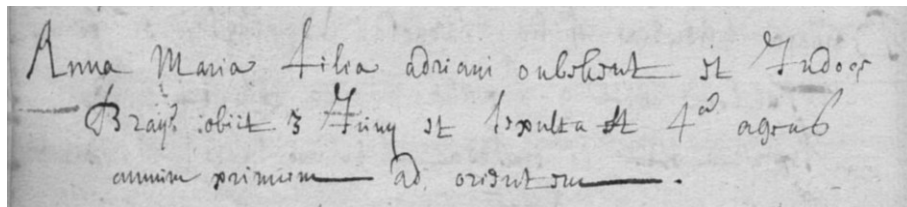 Anna Maria filia adriani onbekent et Judoca
Brays obiit 3 Juny et sepulta est 4a agens
annum primum ad orientem.